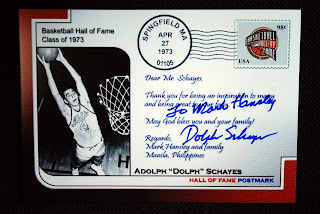 Basketball Hall of Fame
Class of 1973
SPINGFIELD MA
APR
27
1973
01105
98c
BASKETBALL
HALL OF FAME
USA
Dear Mr. Schayes,
Thank you for being an inspiration to many
and being great
To Mark Hansley
May God bless you and your family!
Regards,
Mark Hansley and family
Manila, Philippines
Dolph Schayes
ADOLPH "DOLPH" SCHAYES
HALL OF FAME POSTMARK